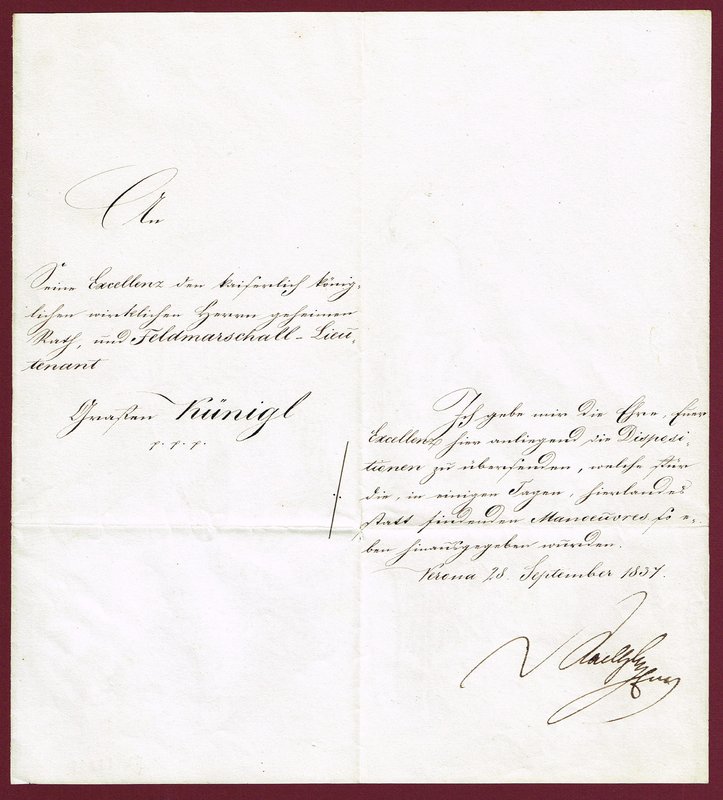 An
Seine Excellenz den kaiserlich könig-
lichen wirklichen Herrn geheimen
Rath, und Feldmarschall-Lieu-
tenant
Grafen Künigl
p. p. p.
Ich gebe mir die Ehre, Euer
Excellenz hier anliegend die Disposi-
tionen zu übersenden, welche für
die, in einigen Tagen, hierlandes
statt findenden Manoeuvres so e-
ben hinausgegeben wurden.
Verona 28. September 1837.